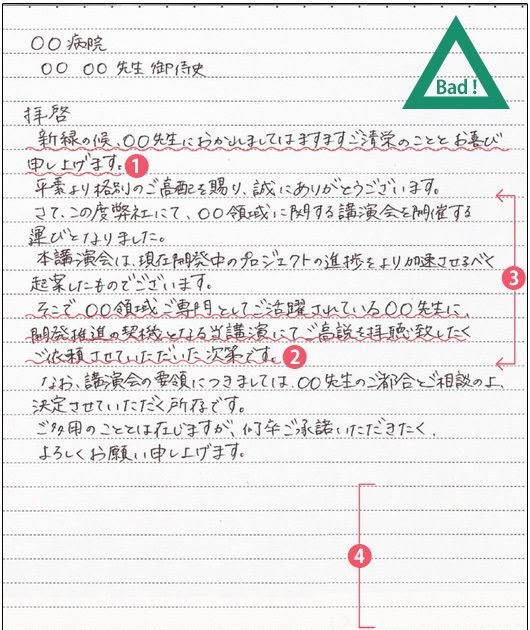 〇〇病院
〇〇 〇〇先生 御侍史
Bad!
拝啓
新緑の候、〇〇先生におかれましてはますますご清栄のこととお喜び
申し上げます。1
平素より格別のご高配を賜り、誠にありがとうございます。
さて、この度弊社にて、〇〇領域に関する講演会を開催する
運びとなりました。
本講演会は、現在開発中のプロジェクトの進捗をより加速させるべく
起案したものでございます。
3
そこで〇〇領域ご専門としてご活躍されている〇〇先生に、
開発推進の契機となる当講演にてご高説を拝聴致したく
ご依頼させていただいた次第です。2
なお、講演会の要領につきましては、〇〇先生のご都合とご相談の上、
決定させていただく所存です。
ご多用のこととは存じますが、何卒ご承諾いただきたく、
よろしくお願い申し上げます。
4